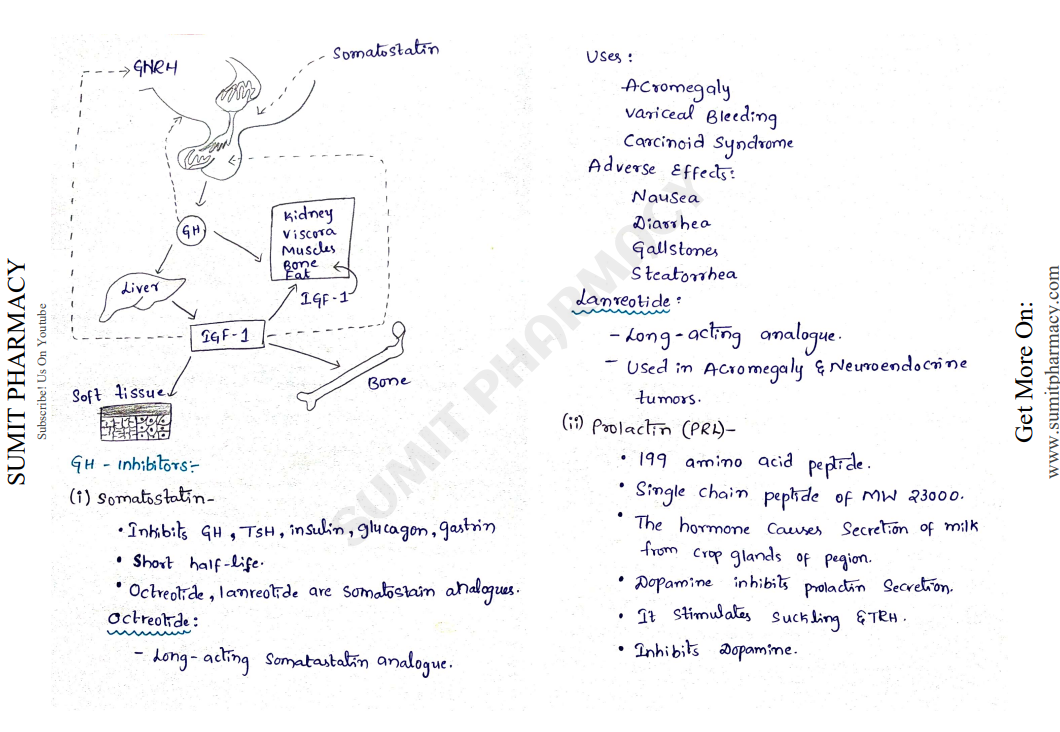 SUMIT PHARMACY
Subscribe! Us On Youtube
GHRH
Somatostatin
GH
Kidney
Viscora
Muscles
Bone
Fat
IGF-1
Liver
IGF-1
Bone
Soft tissue
GH - inhibitors:-
(i) Somatostatin-
• Inhibits GH, TSH, insulin, glucagon, gastrin
• Short half-life.
• Octreotide, lanreotide are somatostain analogues.
Octreotide:
- Long-acting Somatastatin analogue.
Uses:
Acromegaly
Variceal Bleeding
Carcinoid Syndrome
Adverse Effects:
Nausea
Diarrhea
Gallstones
Steatorrhea
Lanreotide:
- Long-acting analogue.
- Used in Acromegaly & Neuroendocrine
tumors.
(ii) Prolactin (PRL)-
• 199 amino acid peptide.
• Single chain peptide of MW 23000.
• The hormone causes secretion of milk
from crop glands of pegion.
• Dopamine inhibits prolactin secretion.
• It stimulates suckling & TRH.
• Inhibits Dopamine.
SUMIT PHARMACY
Get More On:
www.sumitpharmacy.com